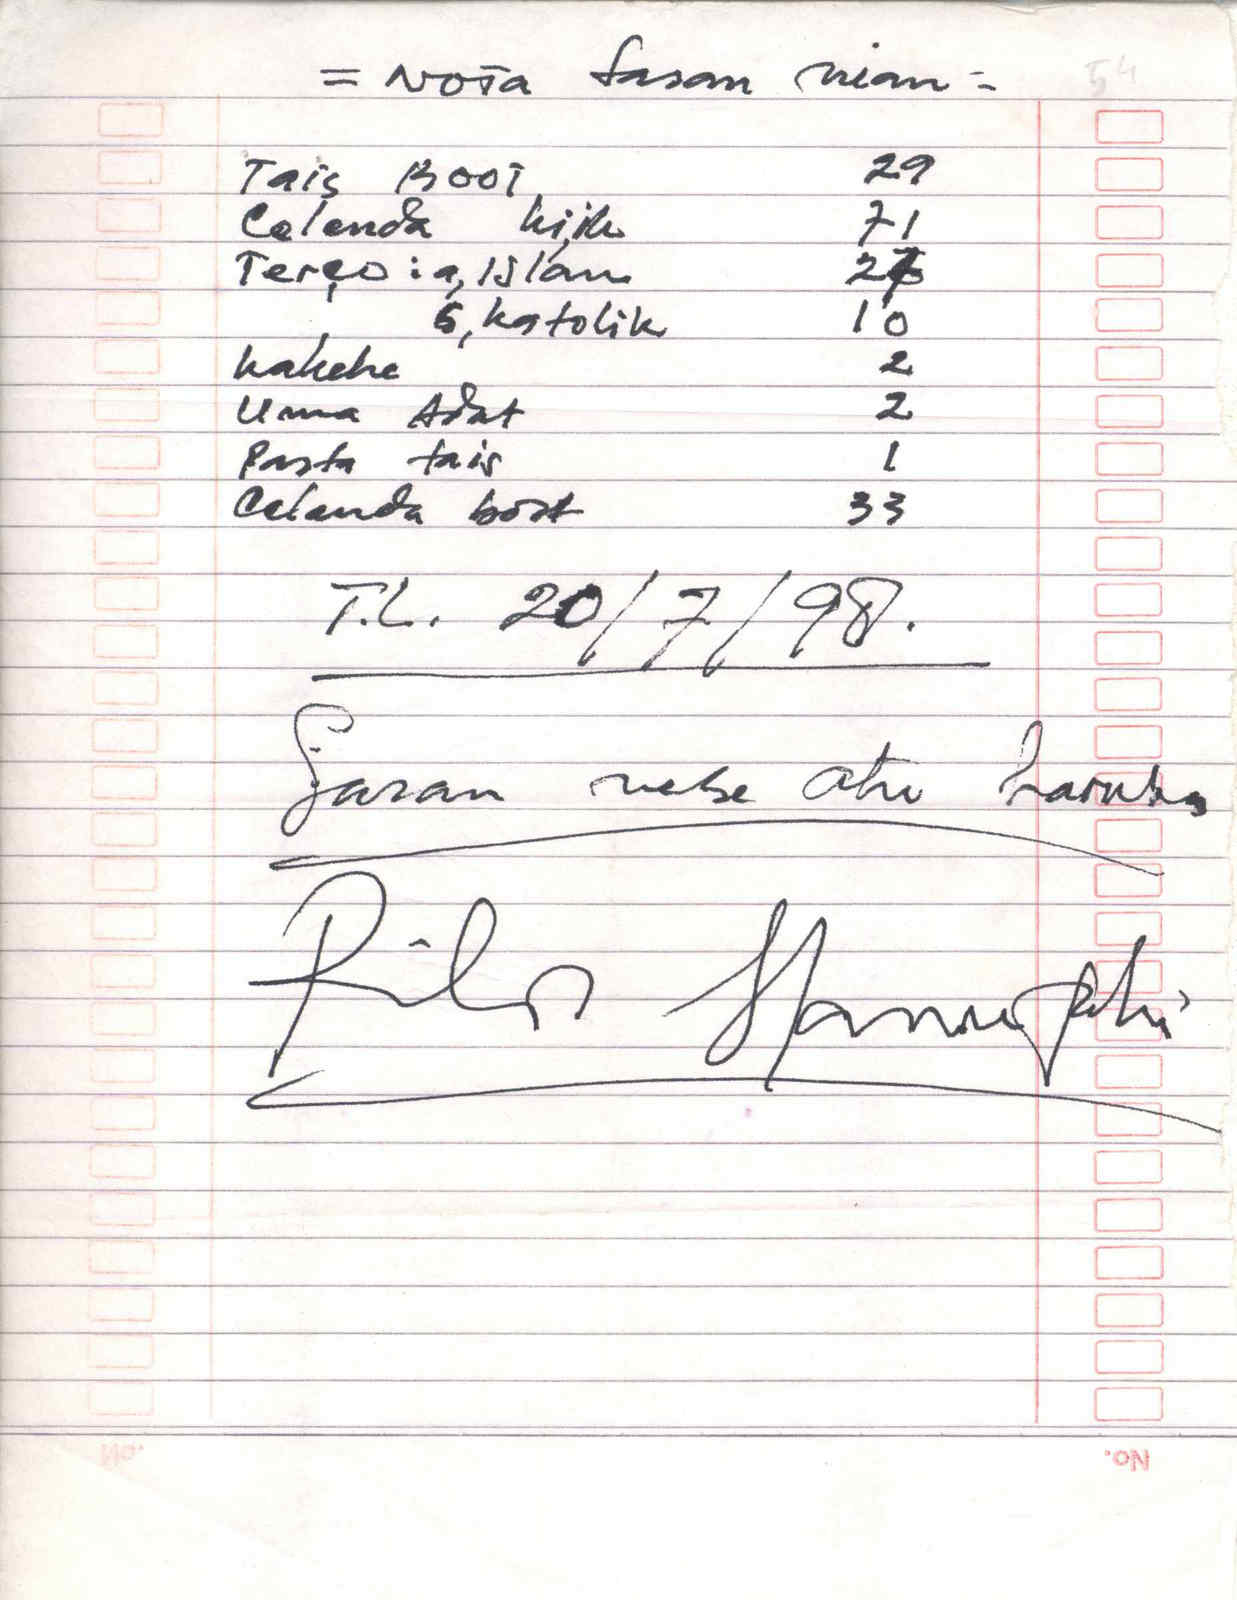 = Nota Sasan nian =
54
Tais Boot 29
Celenda kiik 71
Terço : a, Islam
b, katolik 10
kakehe 2
Uma Adat 2
Pasta tais 1
Celenda boot 33
T.L. 20/7/98.
Sasan nebe atu haruka
.oN .oN